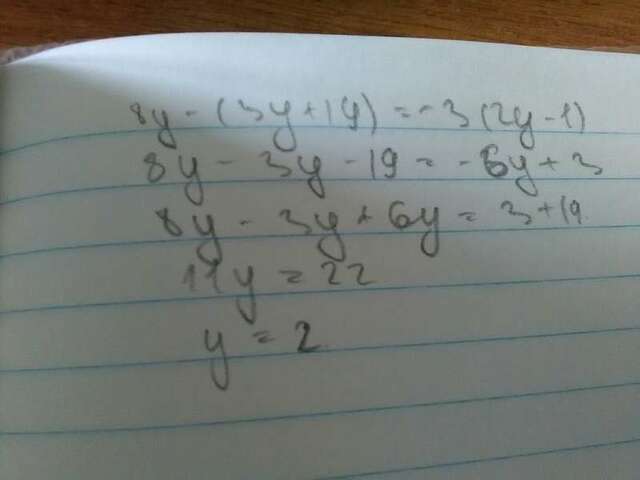 8y - (3y+19) = -3(2y-1)
8y - 3y - 19 = -6y + 3
8y - 3y + 6y = 3 + 19
11y = 22
y = 2